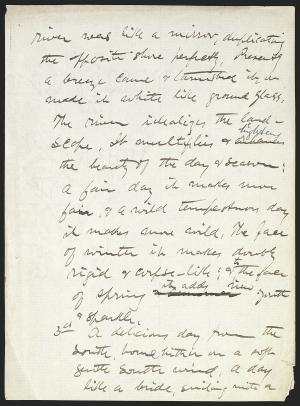 river was like a mirror, duplicating
the opposite shore perfectly. Presently
a breeze came & tarnished it, or
made it white like ground glass.
The river idealizes the land-
scape, it multiplies & heightens
the beauty of the day & season:
a fair day it makes more
fair, & a wild tempestuous day
it makes more wild. The face
of winter it makes doubly
rigid & corpse-like; & to the face
of spring it adds new youth
& sparkle.
3d A delicious day from the
South, borne hither on a soft
gentle South wind, a day
like a bride, smiling with a